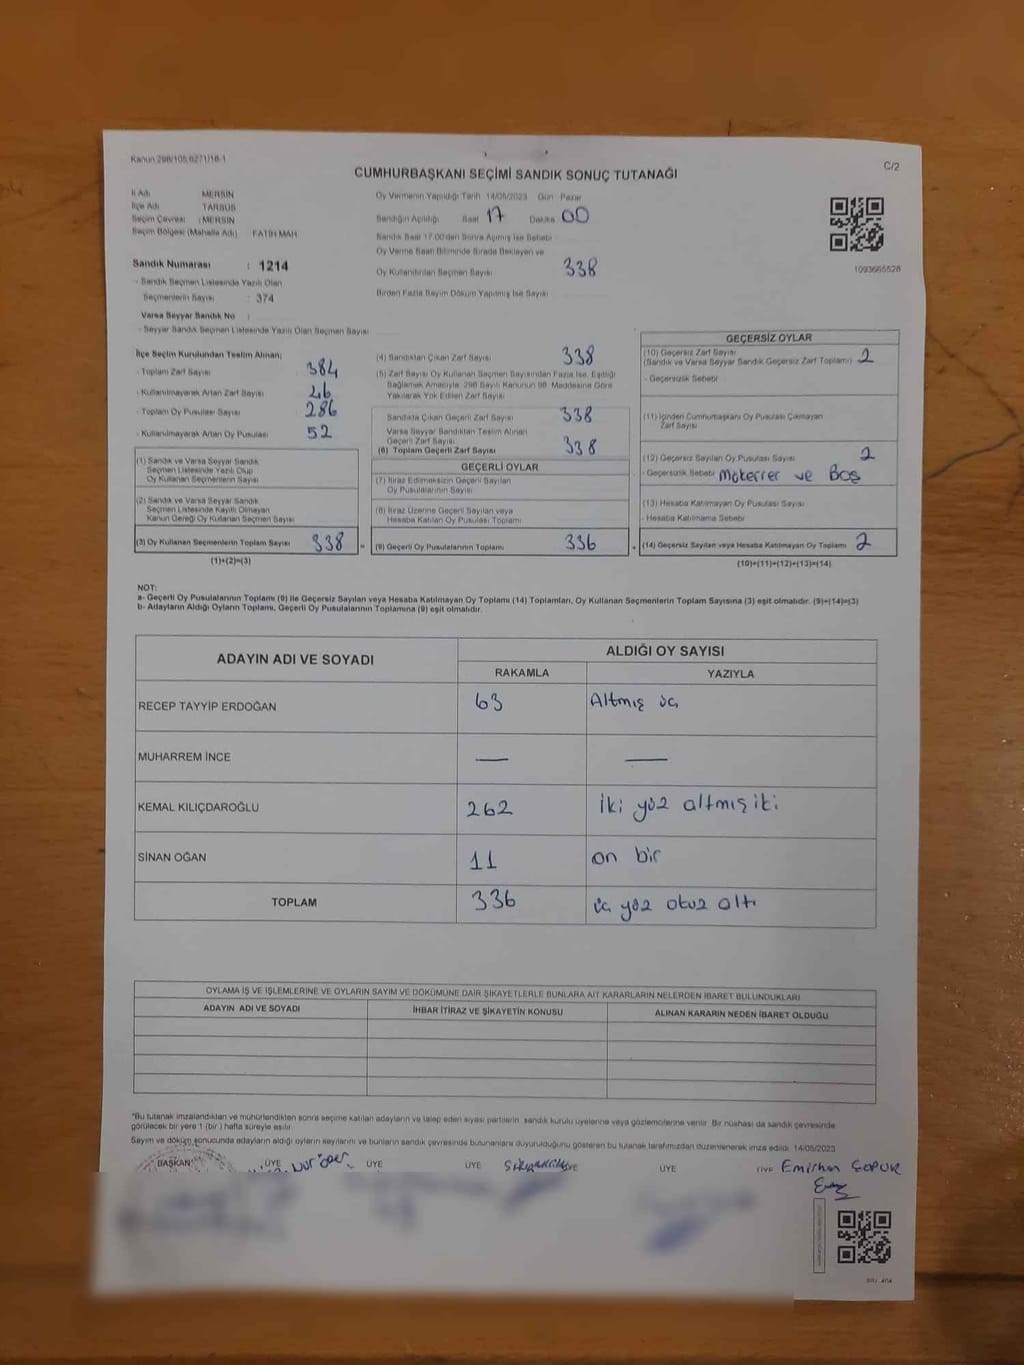 Kanun 298/105,6271/18-1
C/2
CUMHURBAŞKANI SEÇİMİ SANDIK SONUÇ TUTANAĞI
İl Adı MERSİN
İlçe Adı TARSUS
Seçim Çevresi : MERSİN
Seçim Bölgesi (Mahalle Adı) FATİH MAH.
Sandık Numarası : 1214
- Sandık Seçmen Listesinde Yazılı Olan
Seçmenlerin Sayısı : 374
Varsa Seyyar Sandık No :
- Seyyar Sandık Seçmen Listesinde Yazılı Olan Seçmen Sayısı
Oy Vermenin Yapıldığı Tarih 14/05/2023 Gün Pazar
Sandığın Açıldığı Saat 17 Dakika 00
Sandık Saat 17.00'den Sonra Açılmış İse Sebebi
Oy Verme Saati Bitiminde Sırada Bekleyen ve
Oy Kullandırılan Seçmen Sayısı 338
Birden Fazla Sayım Döküm Yapılmış İse Sayısı
1093665528
İlçe Seçim Kurulundan Teslim Alınan;
- Toplam Zarf Sayısı 384
- Kullanılmayarak Artan Zarf Sayısı 46
- Toplam Oy Pusulası Sayısı 286
- Kullanılmayarak Artan Oy Pusulası 52
(1) Sandık ve Varsa Seyyar Sandık
Seçmen Listesinde Yazılı Olup
Oy Kullanan Seçmenlerin Sayısı
(2) Sandık ve Varsa Seyyar Sandık
Seçmen Listesinde Kayıtlı Olmayan
Kanun Gereği Oy Kullanan Seçmen Sayısı
(3) Oy Kullanan Seçmenlerin Toplam Sayısı 338
(1)+(2)=(3)
(4) Sandıktan Çıkan Zarf Sayısı 338
(5) Zarf Sayısı Oy Kullanan Seçmen Sayısından Fazla İse, Eşitliği
Sağlamak Amacıyla, 298 Sayılı Kanunun 98. Maddesine Göre
Yakılarak Yok Edilen Zarf Sayısı
Sandıkta Çıkan Geçerli Zarf Sayısı 338
Varsa Seyyar Sandıktan Teslim Alınan
Geçerli Zarf Sayısı
(6) Toplam Geçerli Zarf Sayısı 338
GEÇERLİ OYLAR
(7) İtiraz Edilmeksizin Geçerli Sayılan
Oy Pusulalarının Sayısı
(8) İtiraz Üzerine Geçerli Sayılan veya
Hesaba Katılan Oy Pusulası Toplamı
= (9) Geçerli Oy Pusulalarının Toplamı 336
GEÇERSİZ OYLAR
(10) Geçersiz Zarf Sayısı
(Sandık ve Varsa Seyyar Sandık Geçersiz Zarf Toplamı) 2
- Geçersizlik Sebebi
(11) İçinden Cumhurbaşkanı Oy Pusulası Çıkmayan
Zarf Sayısı
(12) Geçersiz Sayılan Oy Pusulası Sayısı 2
- Geçersizlik Sebebi Mükerrer ve Boş
(13) Hesaba Katılmayan Oy Pusulası Sayısı
- Hesaba Katılmama Sebebi
+ (14) Geçersiz Sayılan veya Hesaba Katılmayan Oy Toplamı 2
(10)+(11)+(12)+(13)=(14)
NOT:
a- Geçerli Oy Pusulalarının Toplamı (9) ile Geçersiz Sayılan veya Hesaba Katılmayan Oy Toplamı (14) Toplamları, Oy Kullanan Seçmenlerin Toplam Sayısına (3) eşit olmalıdır. (9)+(14)=(3)
b- Adayların Aldığı Oyların Toplamı, Geçerli Oy Pusulalarının Toplamına (9) eşit olmalıdır.
ADAYIN ADI VE SOYADI ALDIĞI OY SAYISI
RAKAMLA YAZIYLA
RECEP TAYYİP ERDOĞAN 63 Altmış üç
MUHARREM İNCE — —
KEMAL KILIÇDAROĞLU 262 iki yüz altmış iki
SİNAN OĞAN 11 on bir
TOPLAM 336 üç yüz otuz altı
OYLAMA İŞ VE İŞLEMLERİNE VE OYLARIN SAYIM VE DÖKÜMÜNE DAİR ŞİKAYETLERLE BUNLARA AİT KARARLARIN NELERDEN İBARET BULUNDUKLARI
ADAYIN ADI VE SOYADI İHBAR İTİRAZ VE ŞİKAYETİN KONUSU ALINAN KARARIN NEDEN İBARET OLDUĞU
*Bu tutanak imzalandıktan ve mühürlendikten sonra seçime katılan adayların ve talep eden siyasi partilerin sandık kurulu üyelerine veya gözlemcilerine verilir. Bir nüshası da sandık çevresinde
görülecek bir yere 1 (bir) hafta süreyle asılır.
Sayım ve döküm sonucunda adayların aldığı oyların sayılarını ve bunların sandık çevresinde bulunanlara duyurulduğunu gösteren bu tutanak tarafımızdan düzenlenerek imza edildi. 14/05/2023
BAŞKAN ÜYE ÜYE ÜYE ÜYE Emirhan ÇOPUR